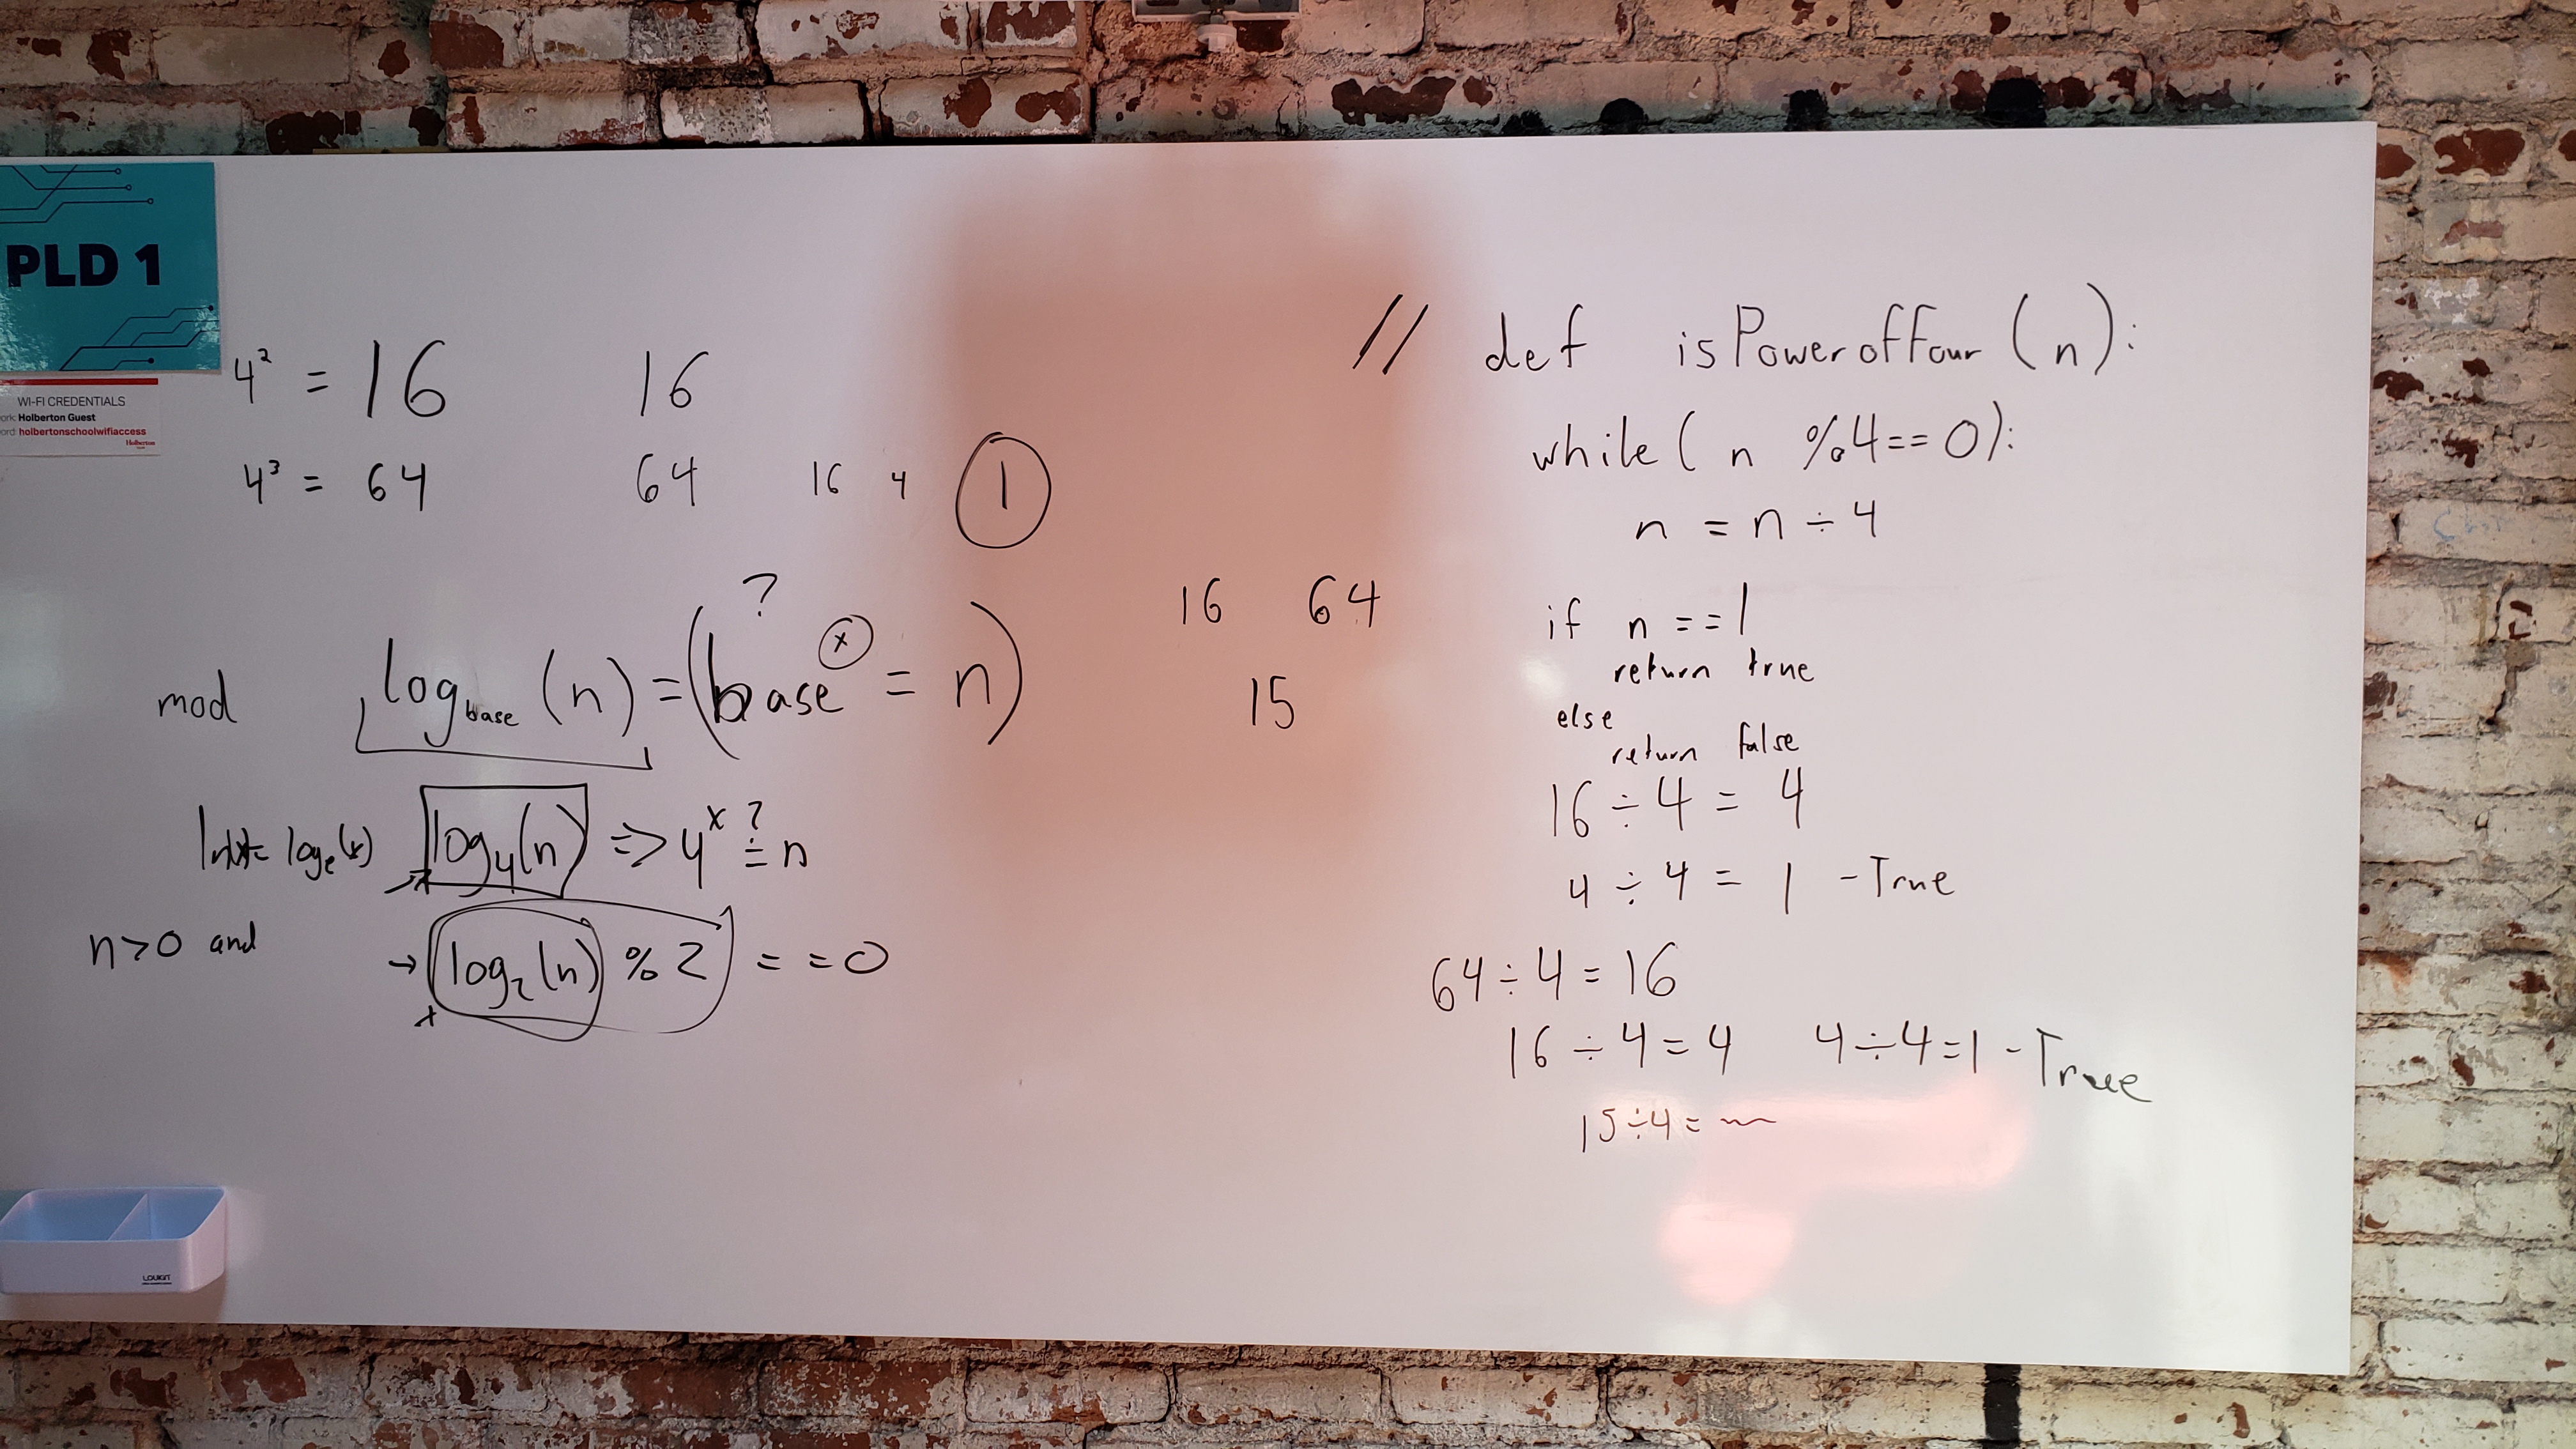 PLD 1
WI-FI CREDENTIALS
ork: Holberton Guest
ord: holbertonschoolwifiaccess
Holberton
4² = 16 16
4³ = 64 64 16 4 1
?
mod log base (n) = (base^x = n)
log_e(x) log₄(n) => 4^x ?= n
n>0 and → log₂(n) % 2 == 0
x
16 64
15
// def isPowerofFour (n):
while( n %4== 0):
n = n ÷ 4
if n ==1
return true
else
return false
16 ÷ 4 = 4
4 ÷ 4 = 1 - True
64 ÷ 4 = 16
16 ÷ 4 = 4 4÷4=1 - True
15÷4=
LOUIGT